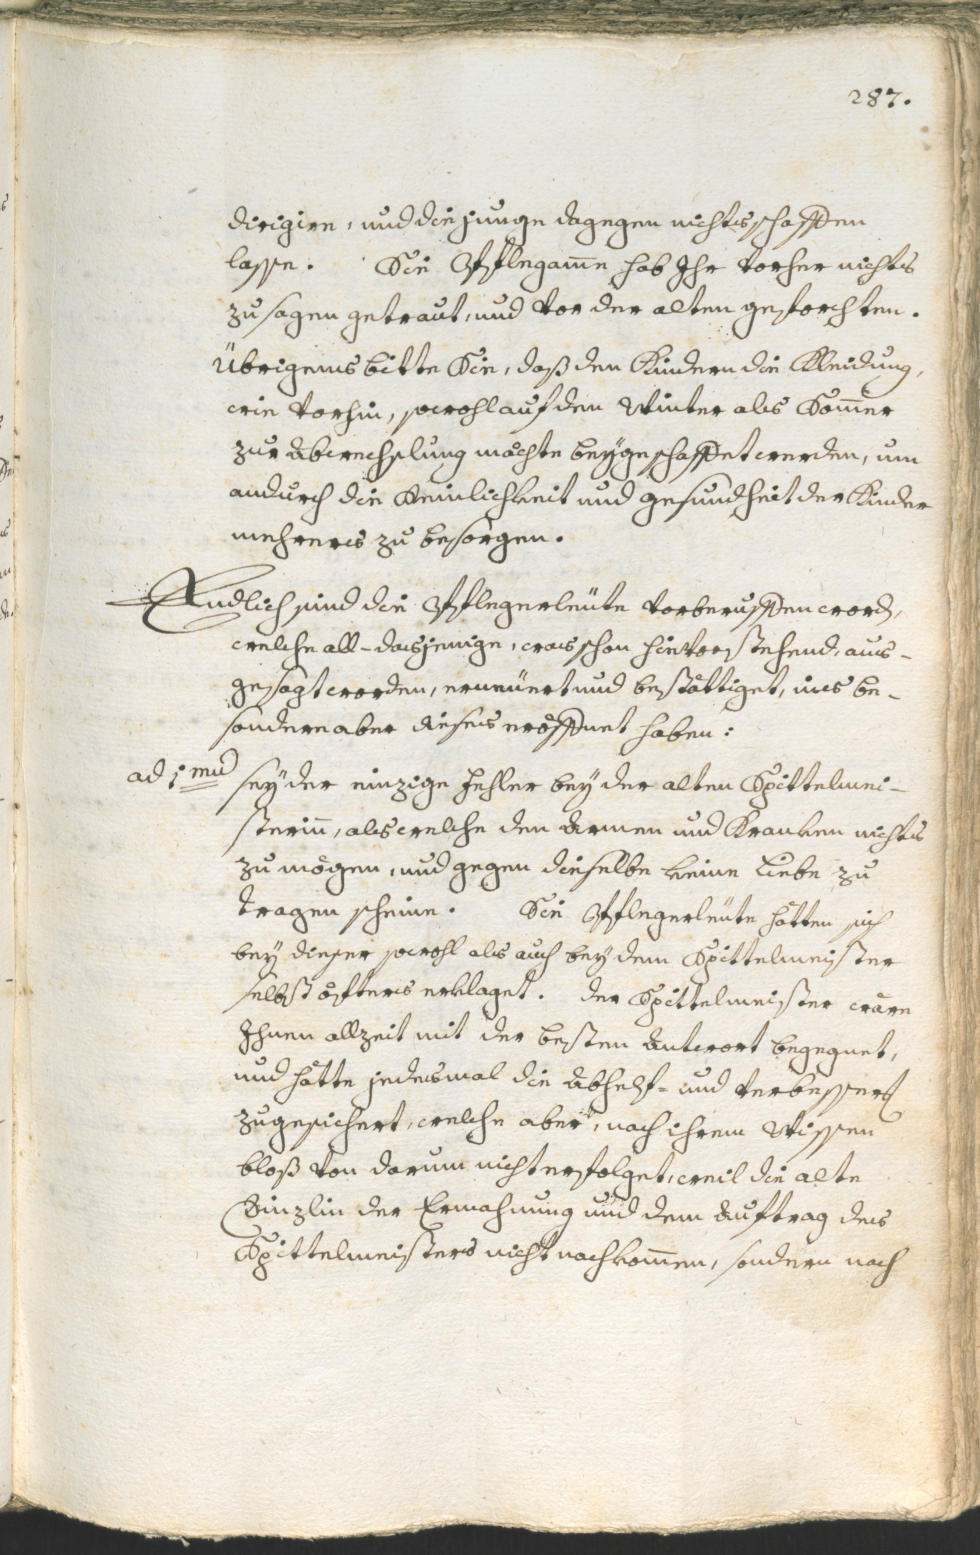 287.
dirigire, und die junge dagegen nichts schaffen
lasse. Die Pflegam̄e hab Ihr vorher nichts
zu sagen getraut, und vor der alten geforchten.
Übrigens bitte Sie, daß den Kindern die Kleidung,
wie vorhin, sowohl auf den Winter als Som̄er
zur Abwechslung möchte beygeschaffet werden, um
andurch die Reinlichkeit und gesundheit der Kinder
mehreres zu besorgen.
Endlich sind die Pflegerleüte vorberuffen word,
welche all-dasjenige, was schon hievorstehend, aus-
gesagt worden, erneüert und bestättiget, ins be-
sondere aber dieses eröffnet haben:
ad 1mū sey der einzige Fehler bey der alten Spittelmei-
sterin̄, als welche den Armen und Kranken nichts
zu mögen, und gegen dieselbe keine Liebe zu
tragen scheine. Die Pflegerleüte hätten sich
bey dieser sowohl als auch bey dem Spittelmeister
selbst öfters erklaget. der Spittelmeister wäre
Ihnen allzeit mit der besten Antwort begegnet,
und hätte jedesmal die Abhelf- und Verbesserg
zugesichert, welche aber, nach ihrem Wissen
bloß von darum nicht erfolget, weil die alte
Sinzlin der Ermahnung und dem Auftrag des
Spittelmeisters nicht nachkom̄en, sondern nach